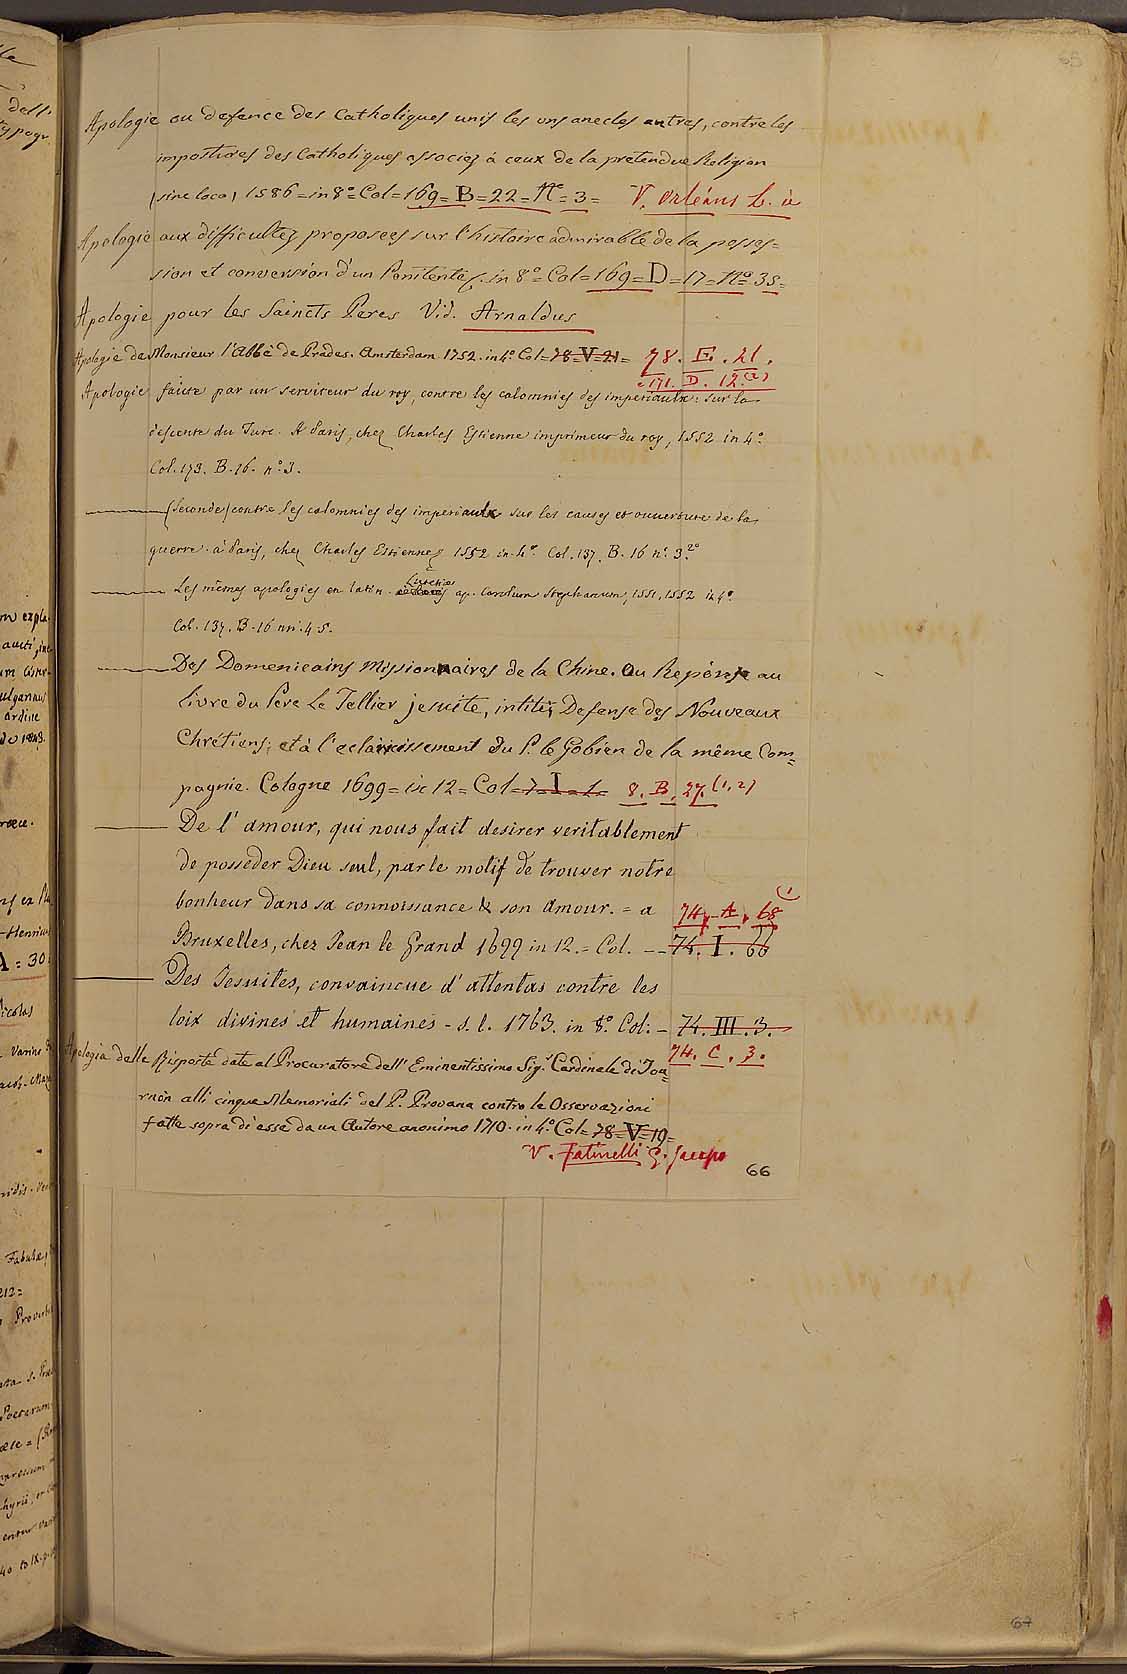 Apologie ou defence des Catholiques unis les uns avec les autres, contre les
impostures des Catholiques associez à ceux de la pretendue Religion
(sine loco) 1586 = in 8° = Col = 169 = B = 22 = N° = 3 = V. Orléans L. de
Apologie aux difficultez proposees sur l'histoire admirable de la posses=
sion et conversion d'un Penitente in 8° = Col = 169 = D = 17 = N° 35 =
Apologie pour les Saincts Peres Vid. Arnaldus
Apologie de Monsieur l'Abbé de Prades. Amsterdam 1752. in 4° Col = 78 = V = 21 = 78. E. 21.
e 171. D. 12 (2)
Apologie faicte par un serviteur du roy, contre les calomnies des imperiaulx: sur la
descente du Turc. A Paris, chez Charles Estienne imprimeur du roy, 1552 in 4°
Col. 173. B. 16. n° 3.
(Seconde) contre les calomnies des imperiaulx sur les causes et ouverture de la
guerre. à Paris, chez Charles Estienne 1552 in 4° Col. 137. B. 16 n° 3 2°
Les mêmes apologies en latin. Lutetiae ap. Carolum Stephanum, 1551, 1552 in 4°
Col. 137. B. 16 nn. 4. 5.
Des Domenicains Missionnaires de la Chine. Ou Reponse au
livre du Pere Le Tellier jesuite, intité, Defense des Nouveaux
Chrétiens; et à l'eclaircissement du P. le Gobien de la même Com=
pagnie. Cologne 1699 = in 12 = Col = 7 = I = 1 = 8. B. 27. (1, 2)
De l'amour, qui nous fait desirer veritablement
de posseder Dieu seul, par le motif de trouver notre
bonheur dans sa connoissance & son amour. = a 74. A. 68 (1
Bruxelles, chez Jean le Grand 1699 in 12. = Col. -- 74. I. 66
Des Jesuites, convaincue d'attentas contre les
loix divines et humaines - s. l. 1763. in 8°. Col: - 74. III. 3.
74. C. 3.
Apologia delle Risposte date al Procuratore dell'Eminentissimo Sig.r Cardinale di Tou=
rnon alli cinque Memoriali del P. Provana contro le Osservazioni
fatte sopra di esse da un Autore anonimo 1710. in 4° Col = 78 = V = 19 =
V. Fatinelli G. Jacopo
66
67